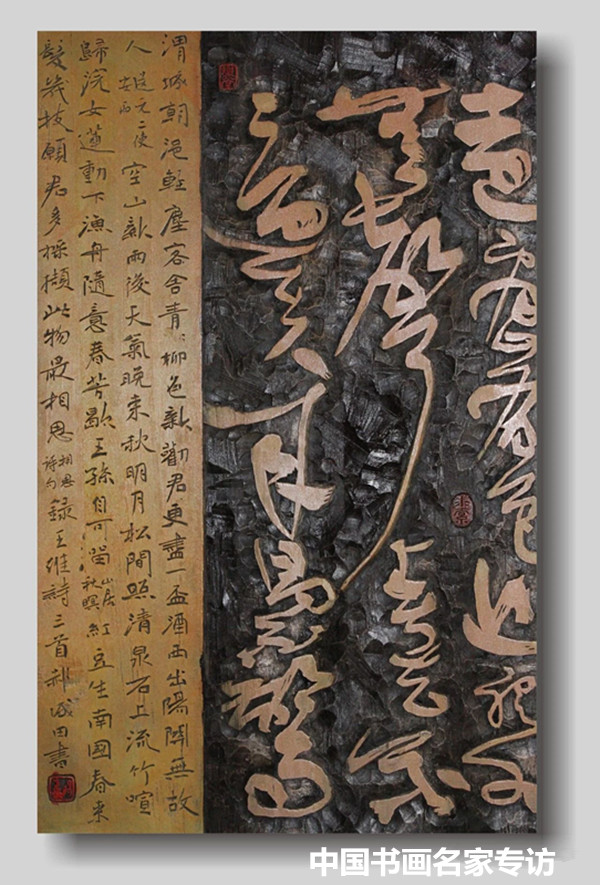 遠看山有色近聽水
無聲春去花還
在人來鳥不驚
渭城朝浥輕塵客舍青々柳色新勸君更盡一盃酒西出陽関無故
人 送元二使安西 空山新雨後天氣晚来秋明月松間照清泉石上流竹喧
歸浣女蓮動下漁舟隨意春芳歇王孫自可留 山居秋暝 紅豆生南國春来
發幾枝願君多採擷此物最相思 相思 錄王維詩三首 書
中国书画名家专访